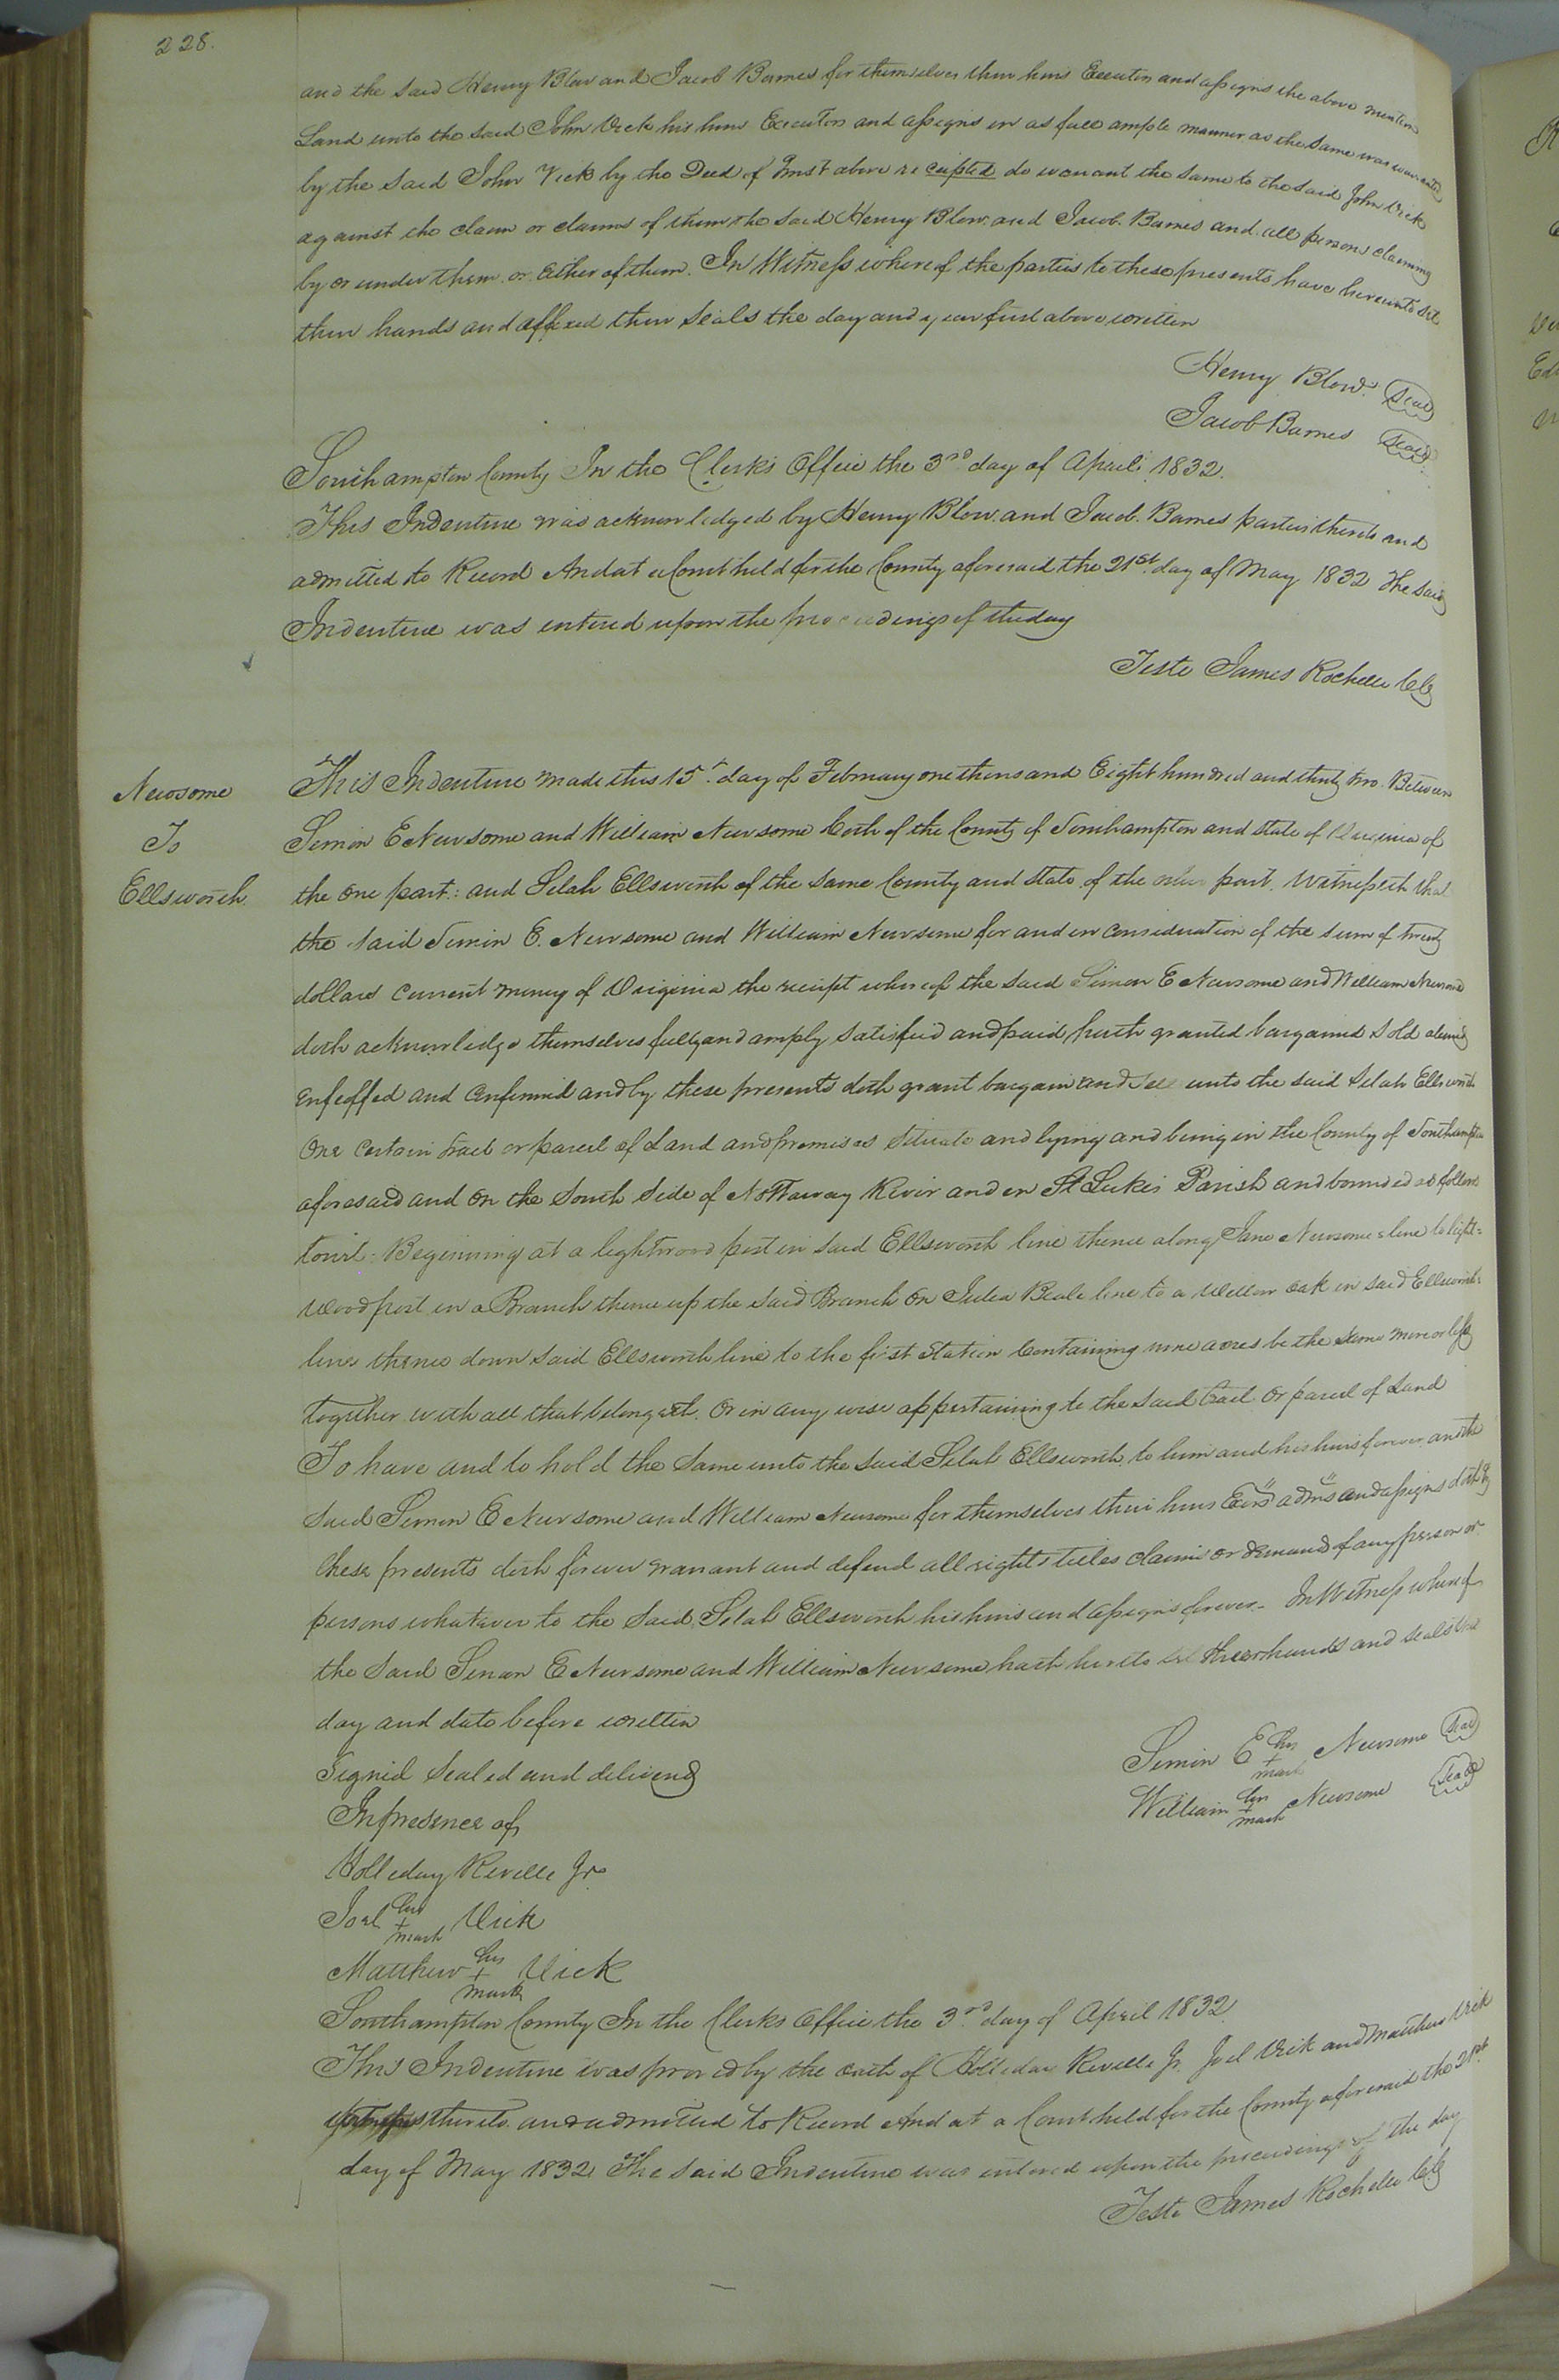 228.
and the said Henry Blow and Jacob Barnes for themselves their heirs Executors and assigns the above mention
Land unto the said John Vick his heirs Executors and assigns in as full ample manner as the same was warranted
by the said John Vick by the Deed of Trust above re cepted do warrant the same to the said John Vick
against the claim or claims of them the said Henry Blow and Jacob Barnes and all persons claiming
by or under them or Either of them. In Witness whereof the parties to these presents have hereunto set
their hands and affixed their Seals the day and year first above written
Henry Blow Seal
Jacob Barnes Seal
Southampton County In the Clerks Office the 3rd day of April 1832.
This Indenture was acknowledged by Henry Blow and Jacob Barnes parties thereto and
admitted to Record And at a Court held for the County aforesaid the 21st day of May 1832 The said
Indenture was entered upon the proceedings of the day
Teste James Rochelle Clk
Newsome
To
Ellsworth
This Indenture made this 15th day of February one thousand Eight hundred and thirty two. Between
Simon E Newsome and William Newsome both of the County of Southampton and State of Virginia of
the one part: and Selah Ellsworth of the same County and State of the other part. Witnesseth that
the said Simon E. Newsome and William Newsome for and in consideration of the sum of twenty
dollars current money of Virginia the receipt whereof the said Simon E Newsome and William Newsome
doth acknowledge themselves fully and amply satisfied and paid hath granted bargained sold aliened
Enfeoffed and Confirmed and by these presents doth grant bargain and sell unto the said Selah Ellsworth
One Certain tract or parcel of Land and premises situate and lying and being in the County of Southampton
aforesaid and on the South Side of Nottaway River and in St Lukes Parish and bounded as follows
towit: Beginning at a lightwood post in said Ellsworth line thence along Jane Newsomes line to light=
wood post in a Branch thence up the said Branch on Julia Beale line to a Willow oak in said Ellsworth
line thence down said Ellsworth line to the first Station Containing nine acres be the same more or less
together with all that belongeth. Or in any wise appertaining to the said tract or parcel of Land
To have and to hold the same unto the said Selah Ellsworth to him and his heirs forever and the
said Simon E Newsome and William Newsome for themselves their heirs Exors adms and assigns doth by
these presents doth forever warrant and defend all rights titles claims or demands of any person or
persons whatever to the said Selah Ellsworth his heirs and assigns forever - In Witness whereof
the said Simon E Newsome and William Newsome hath hereto set their hands and seals the
day and date before written
Signed Sealed and delivered
In presence of
Simon E his + mark Newsome Seal
William his + mark Newsome Seal
Holleday Revelle Jr
Joel his + mark Vick
Matthew his + mark Vick
Southampton County In the Clerks Office the 3rd day of April 1832.
This Indenture was proved by the oath of Holleday Revelle Jr. Joel Vick and Matthew Vick
thereto and admitted to Record And at a Court held for the County aforesaid the 21st
day of May 1832 The said Indenture was entered upon the proceedings of the day
Teste James Rochelle Clk